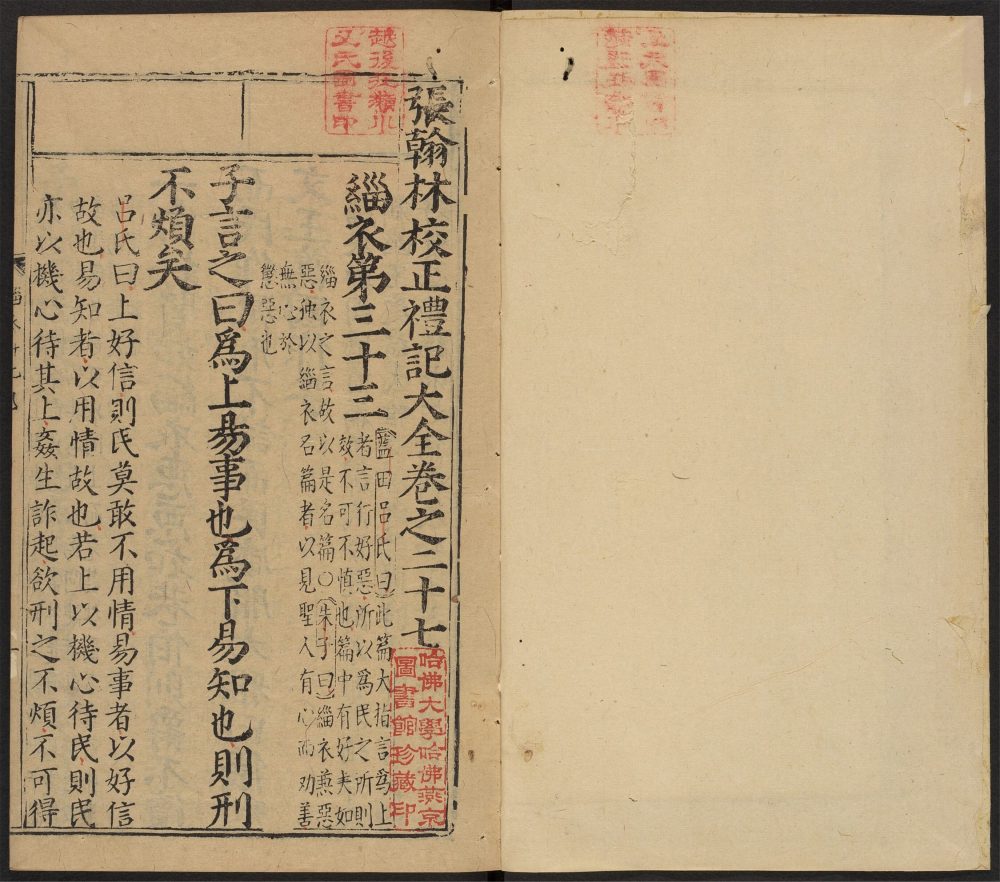 張翰林校正禮記大全卷之二十七
緇衣第三十三
藍田呂氏曰此篇大指言爲上
者言行好惡所以爲民之所則
效不可不慎也篇中有好夫如
緇衣之言故以是名篇○朱子曰緇衣兼惡
惡獨以緇衣名篇者以見聖人有心而勸善
無心於
懲惡也
子言之曰爲上易事也爲下易知也則刑
不煩矣
呂氏曰上好信則民莫敢不用情易事者以好信
故也易知者以用情故也若上以機心待民則民
亦以機心待其上姦生詐起欲刑之不煩不可得
哈佛大學哈佛燕京
圖書館珍藏印
氏圖書印